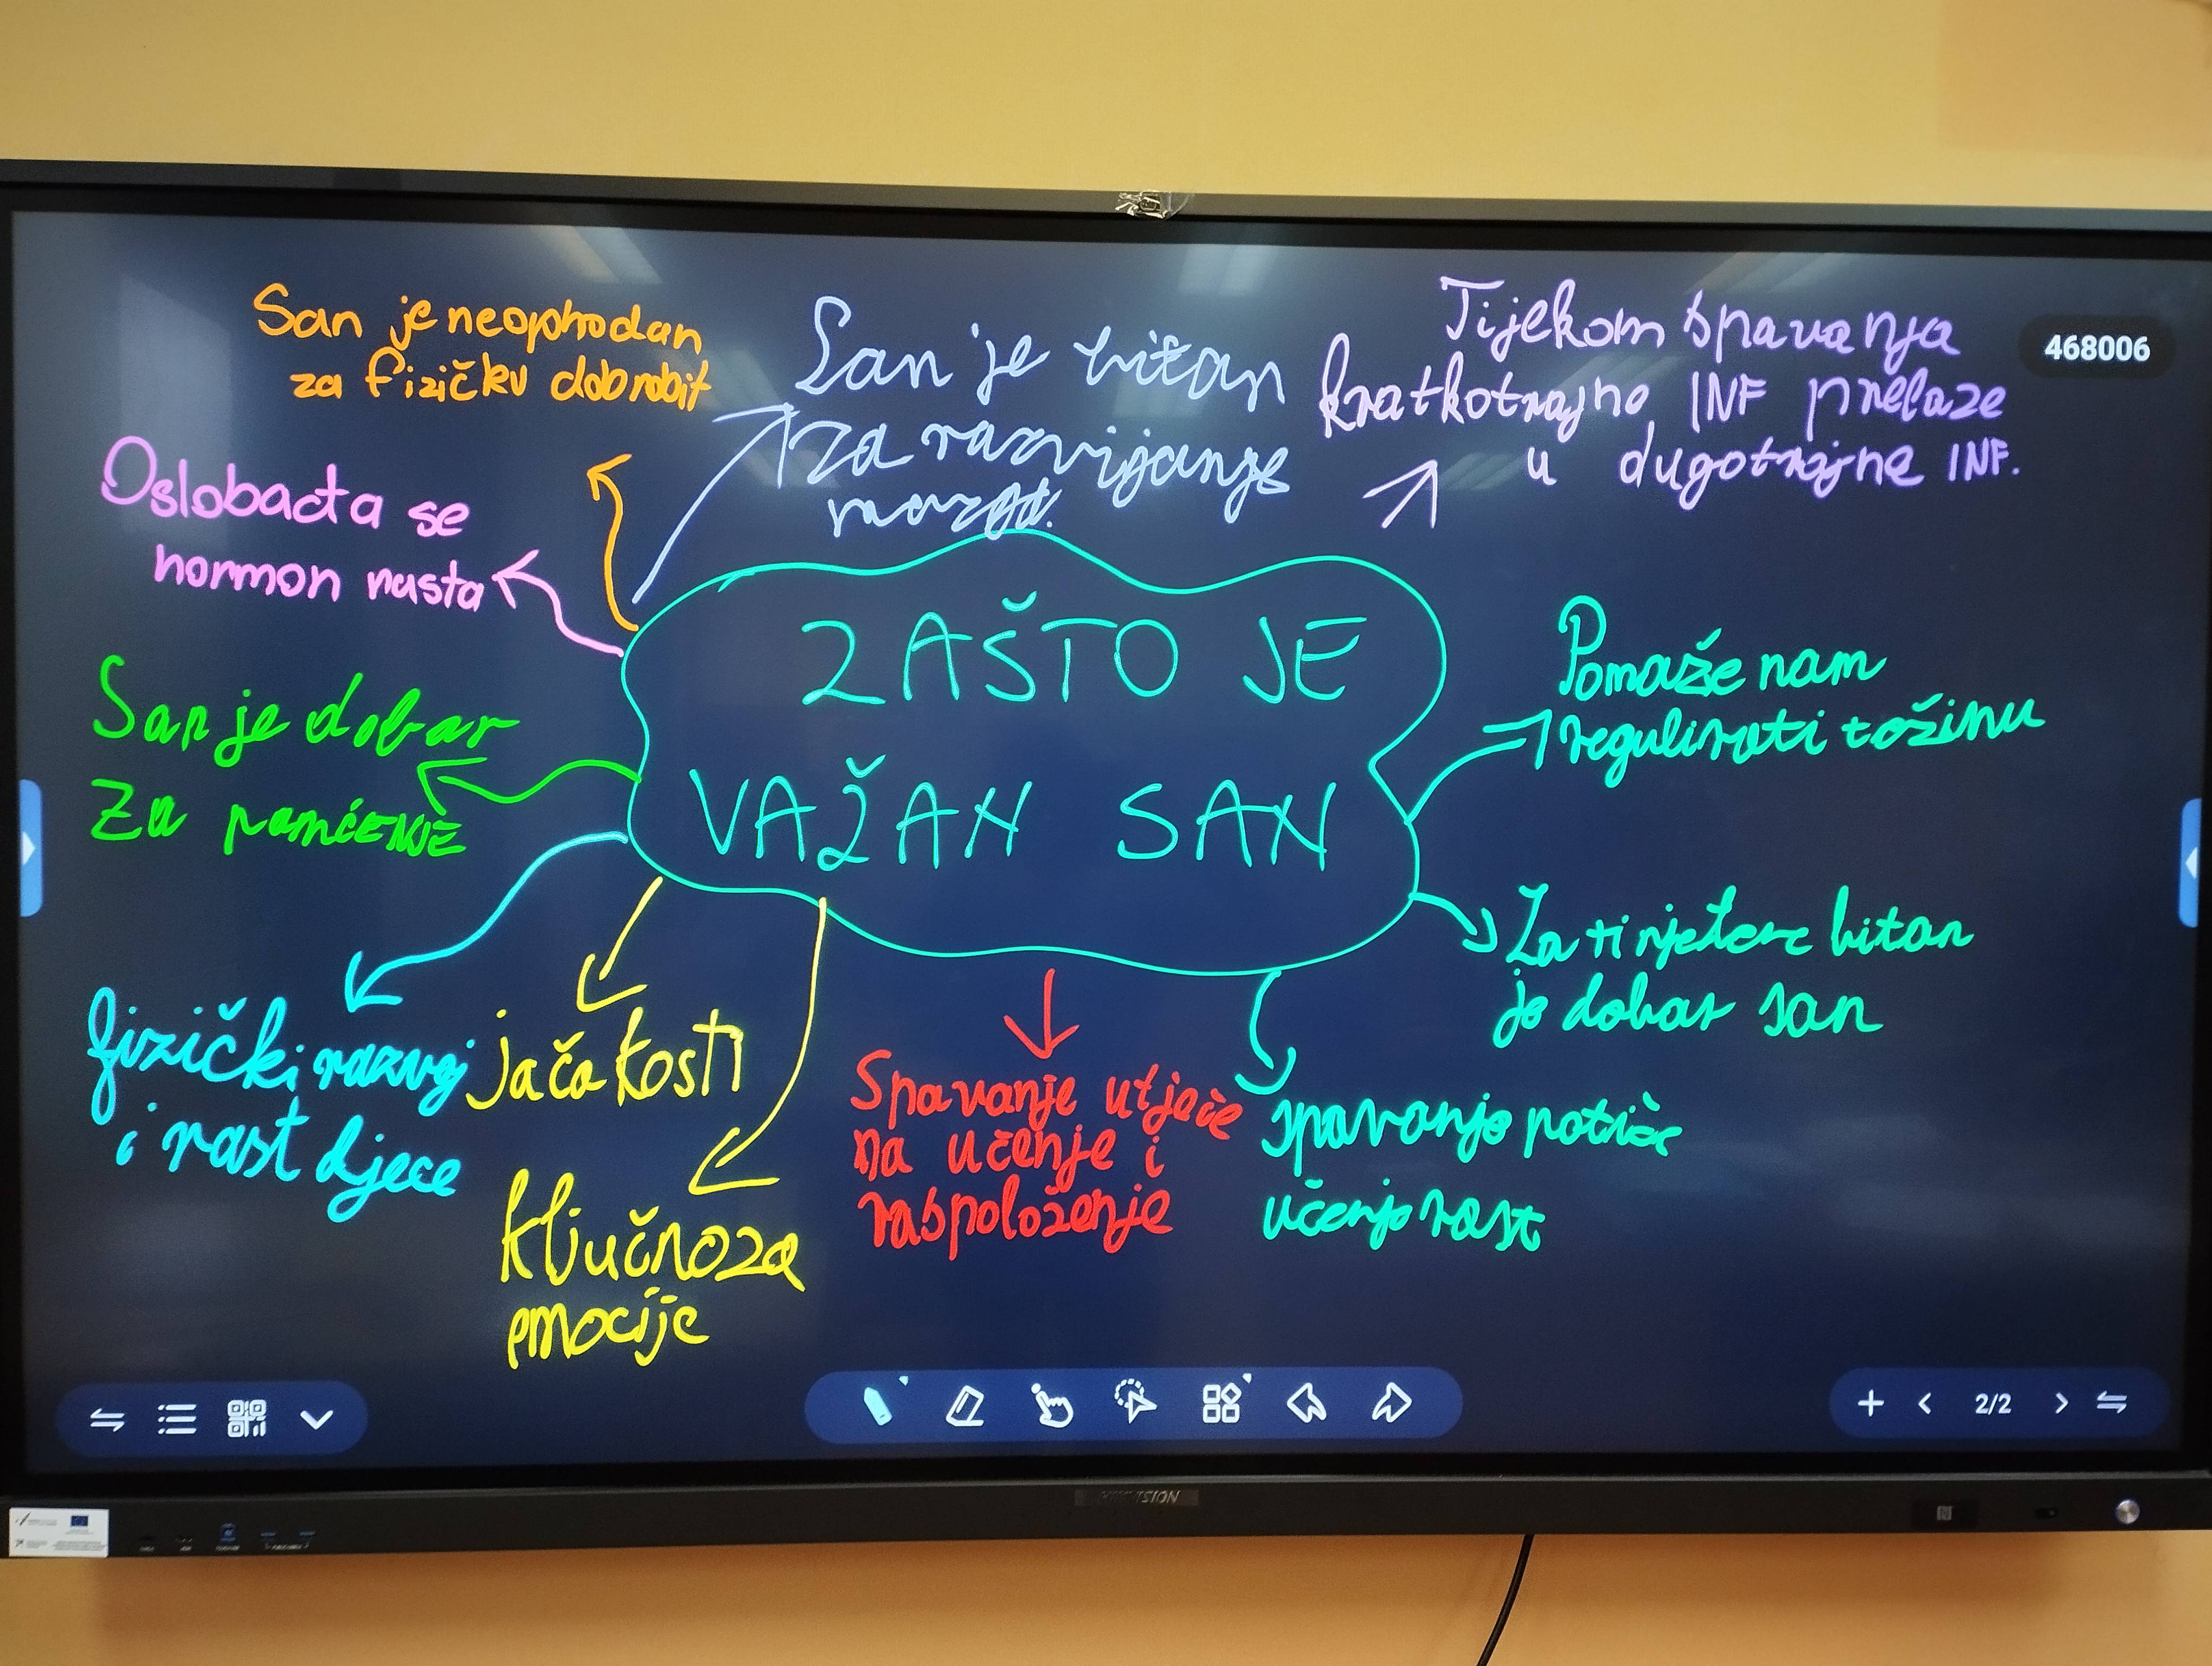 San je neophodan
za fizičku dobrobit
San je bitan
za razvijanje
mozga.
Tijekom spavanja
kratkotrajne INF prelaze
u dugotrajne INF.
468006
Oslobađa se
hormon rasta
ZAŠTO JE
VAŽAN SAN
Pomaže nam
regulirati težinu
San je dobar
za pamćenje
Za tinejđere bitan
je dobar san
fizički razvoj
i rast djece
jača kosti
ključno za
emocije
Spavanje utječe
na učenje i
raspoloženje
spavanje potiče
učenje rast
2/2
HIKVISION